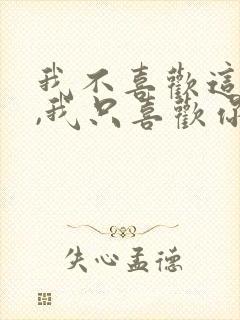 我不喜歡這
,我只喜歡你
失心孟德